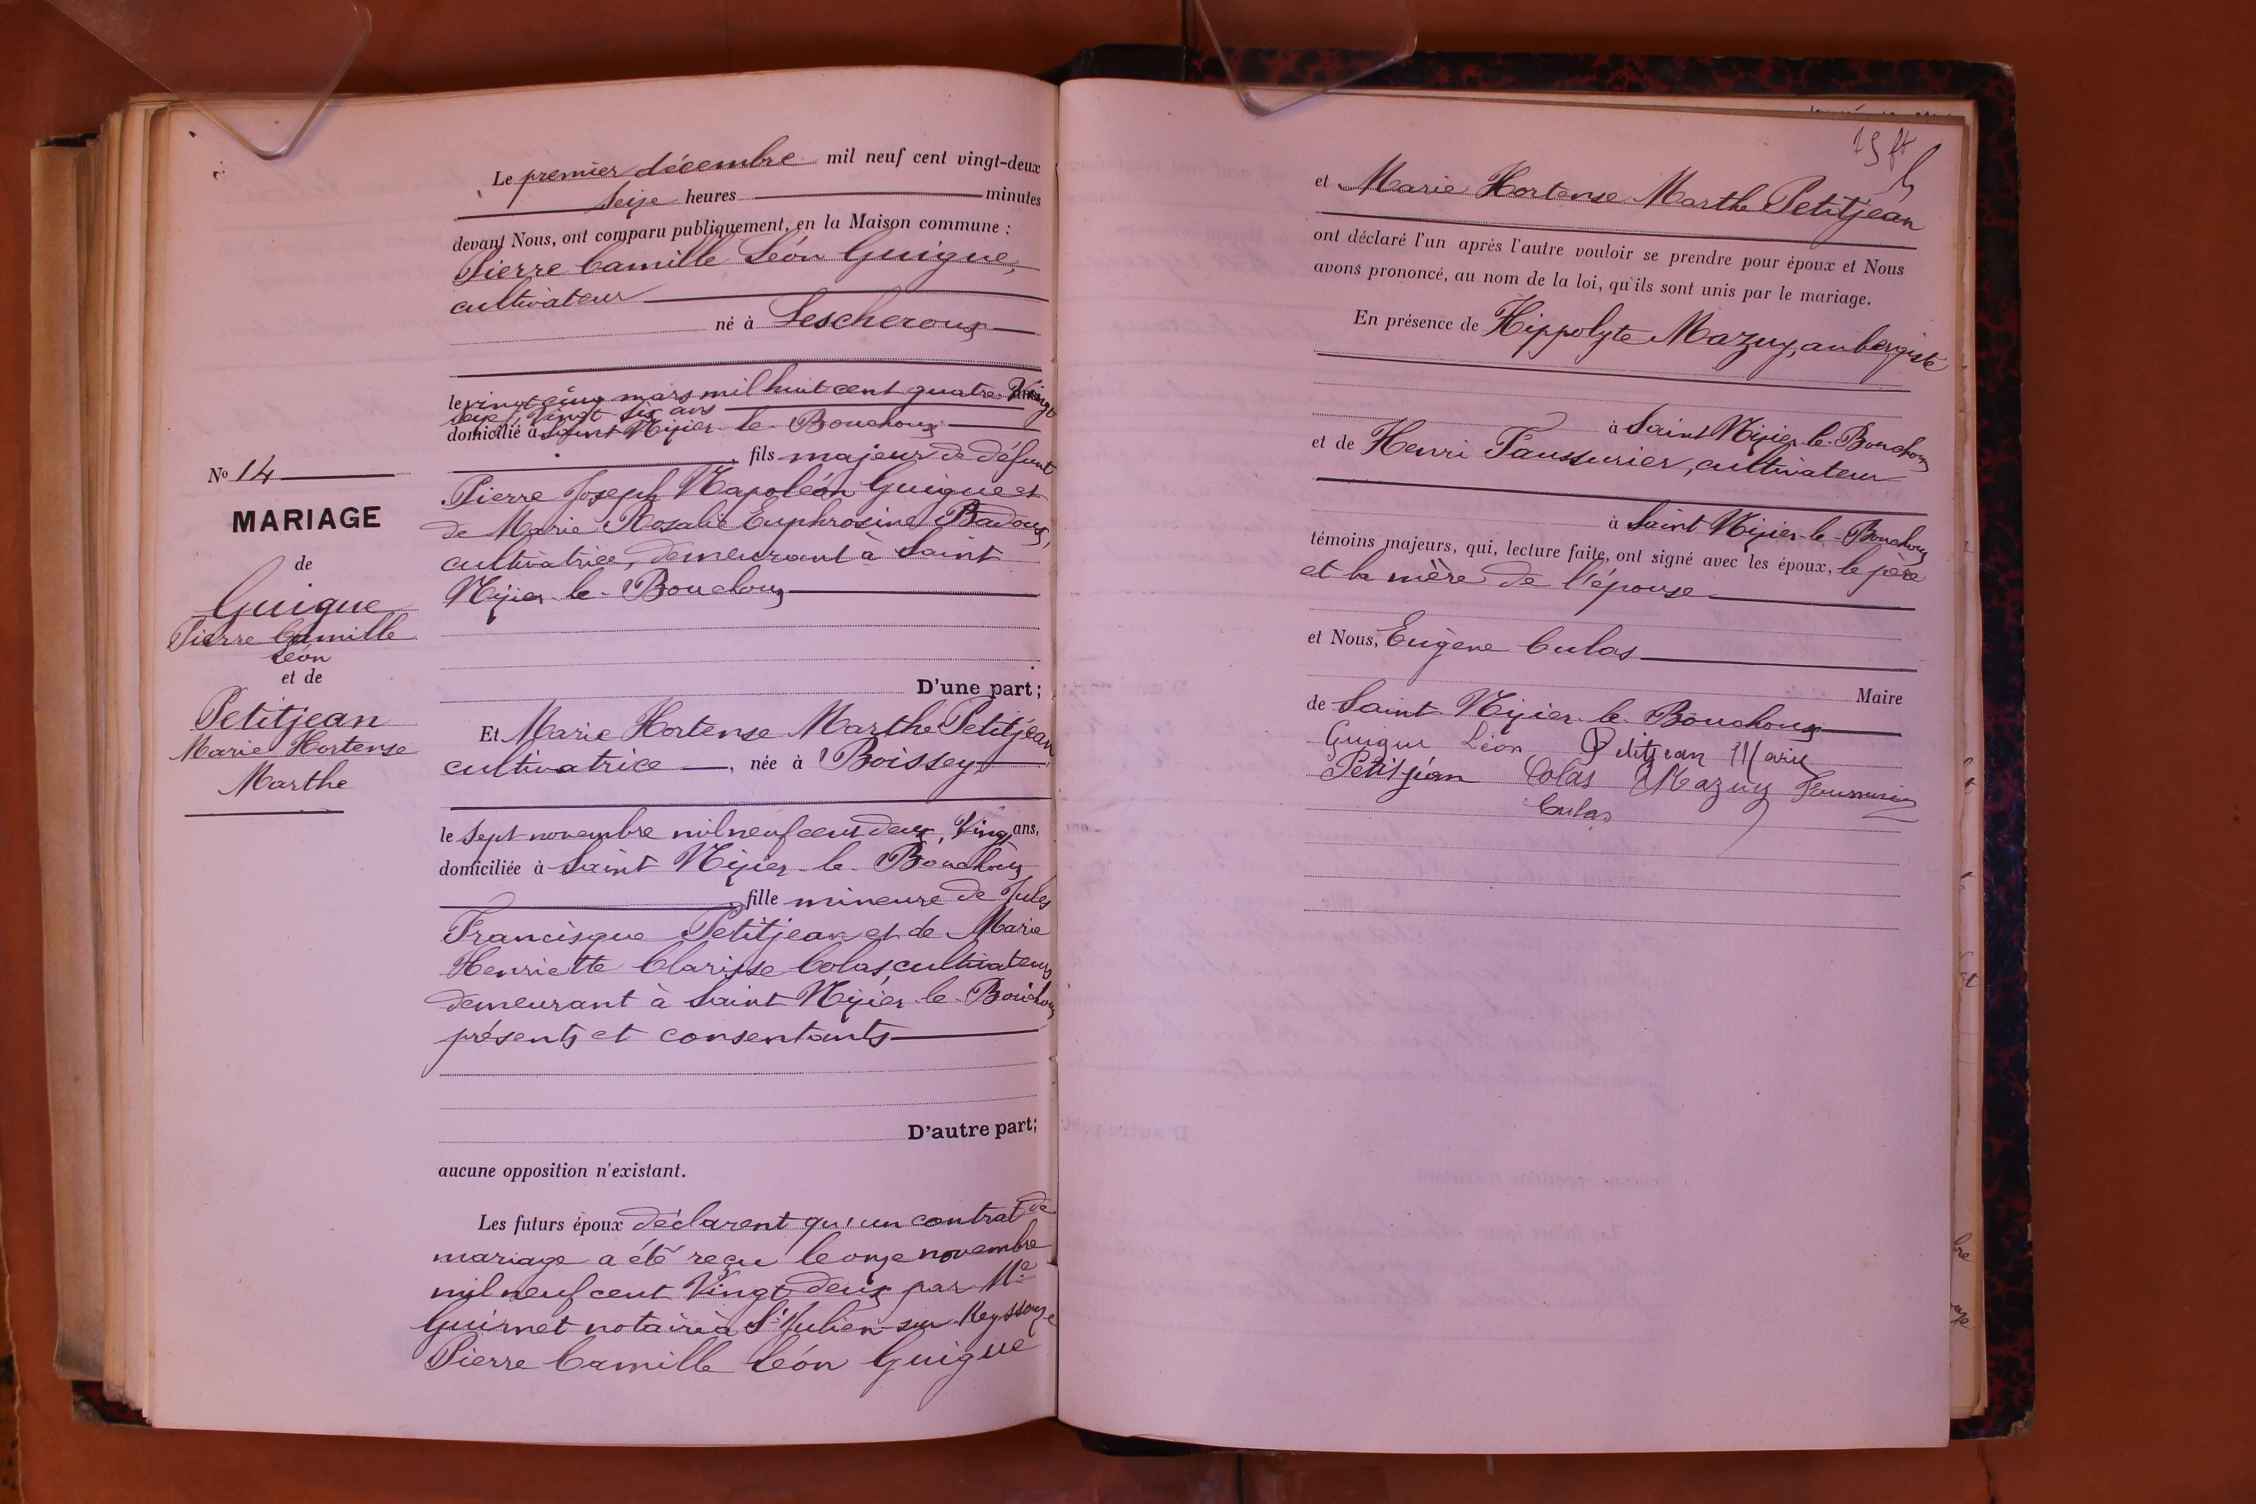 Le premier décembre mil neuf cent vingt-deux
seize heures minutes
devant Nous, ont comparu publiquement, en la Maison commune :
Pierre Camille Léon Guigue,
cultivateur
né à Lescheroux
le vingt cinq mars mil huit cent quatre-vingt
seize, vingt six ans
domicilié à Saint Nizier-le-Bouchoux
fils majeur de défunt
Pierre Joseph Napoléon Guigue et
de Marie Rosalie Euphrosine Badoux,
cultivatrice, demeurant à Saint
Nizier-le-Bouchoux
D'une part ;
Nº 14
MARIAGE
de
Guigue
Pierre Camille
Léon
et de
Petitjean
Marie Hortense
Marthe
Et Marie Hortense Marthe Petitjean,
cultivatrice, née à Boissey
le sept novembre mil neuf cent deux, Vingt ans,
domiciliée à Saint Nizier-le-Bouchoux
fille mineure de Jules
Francisque Petitjean et de Marie
Henriette Clarisse Colas, cultivateurs
demeurant à Saint Nizier-le-Bouchoux
présents et consentants
D'autre part ;
aucune opposition n'existant.
Les futurs époux déclarent qu'un contrat de
mariage a été reçu le onze novembre
mil neuf cent Vingt deux par Me
Guirnet notaire à St Julien-sur-Reyssouze
Pierre Camille Léon Guigue
et Marie Hortense Marthe Petitjean
ont déclaré l'un après l'autre vouloir se prendre pour époux et Nous
avons prononcé, au nom de la loi, qu'ils sont unis par le mariage.
En présence de Hippolyte Mazuy, aubergiste
à Saint Nizier-le-Bouchoux
et de Henri Faussurier, cultivateur
à Saint Nizier-le-Bouchoux
témoins majeurs, qui, lecture faite, ont signé avec les époux, le père
et la mère de l'épouse
et Nous, Eugène Culas
Maire
de Saint-Nizier-le-Bouchoux
Guigue Léon Petitjean Marie
Petitjean Colas Mazuy Faussurier
Culas